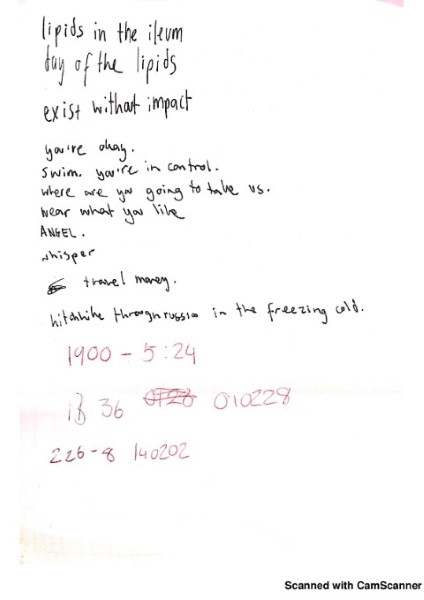 lipids in the ileum
day of the lipids
exist without impact
you're okay.
swim. you're in control.
where are you going to take us.
wear what you like
ANGEL.
whisper
travel money.
hitchhike through russia in the freezing cold.
1900 - 5:24
36 010228
226-8 140202
Scanned with CamScanner